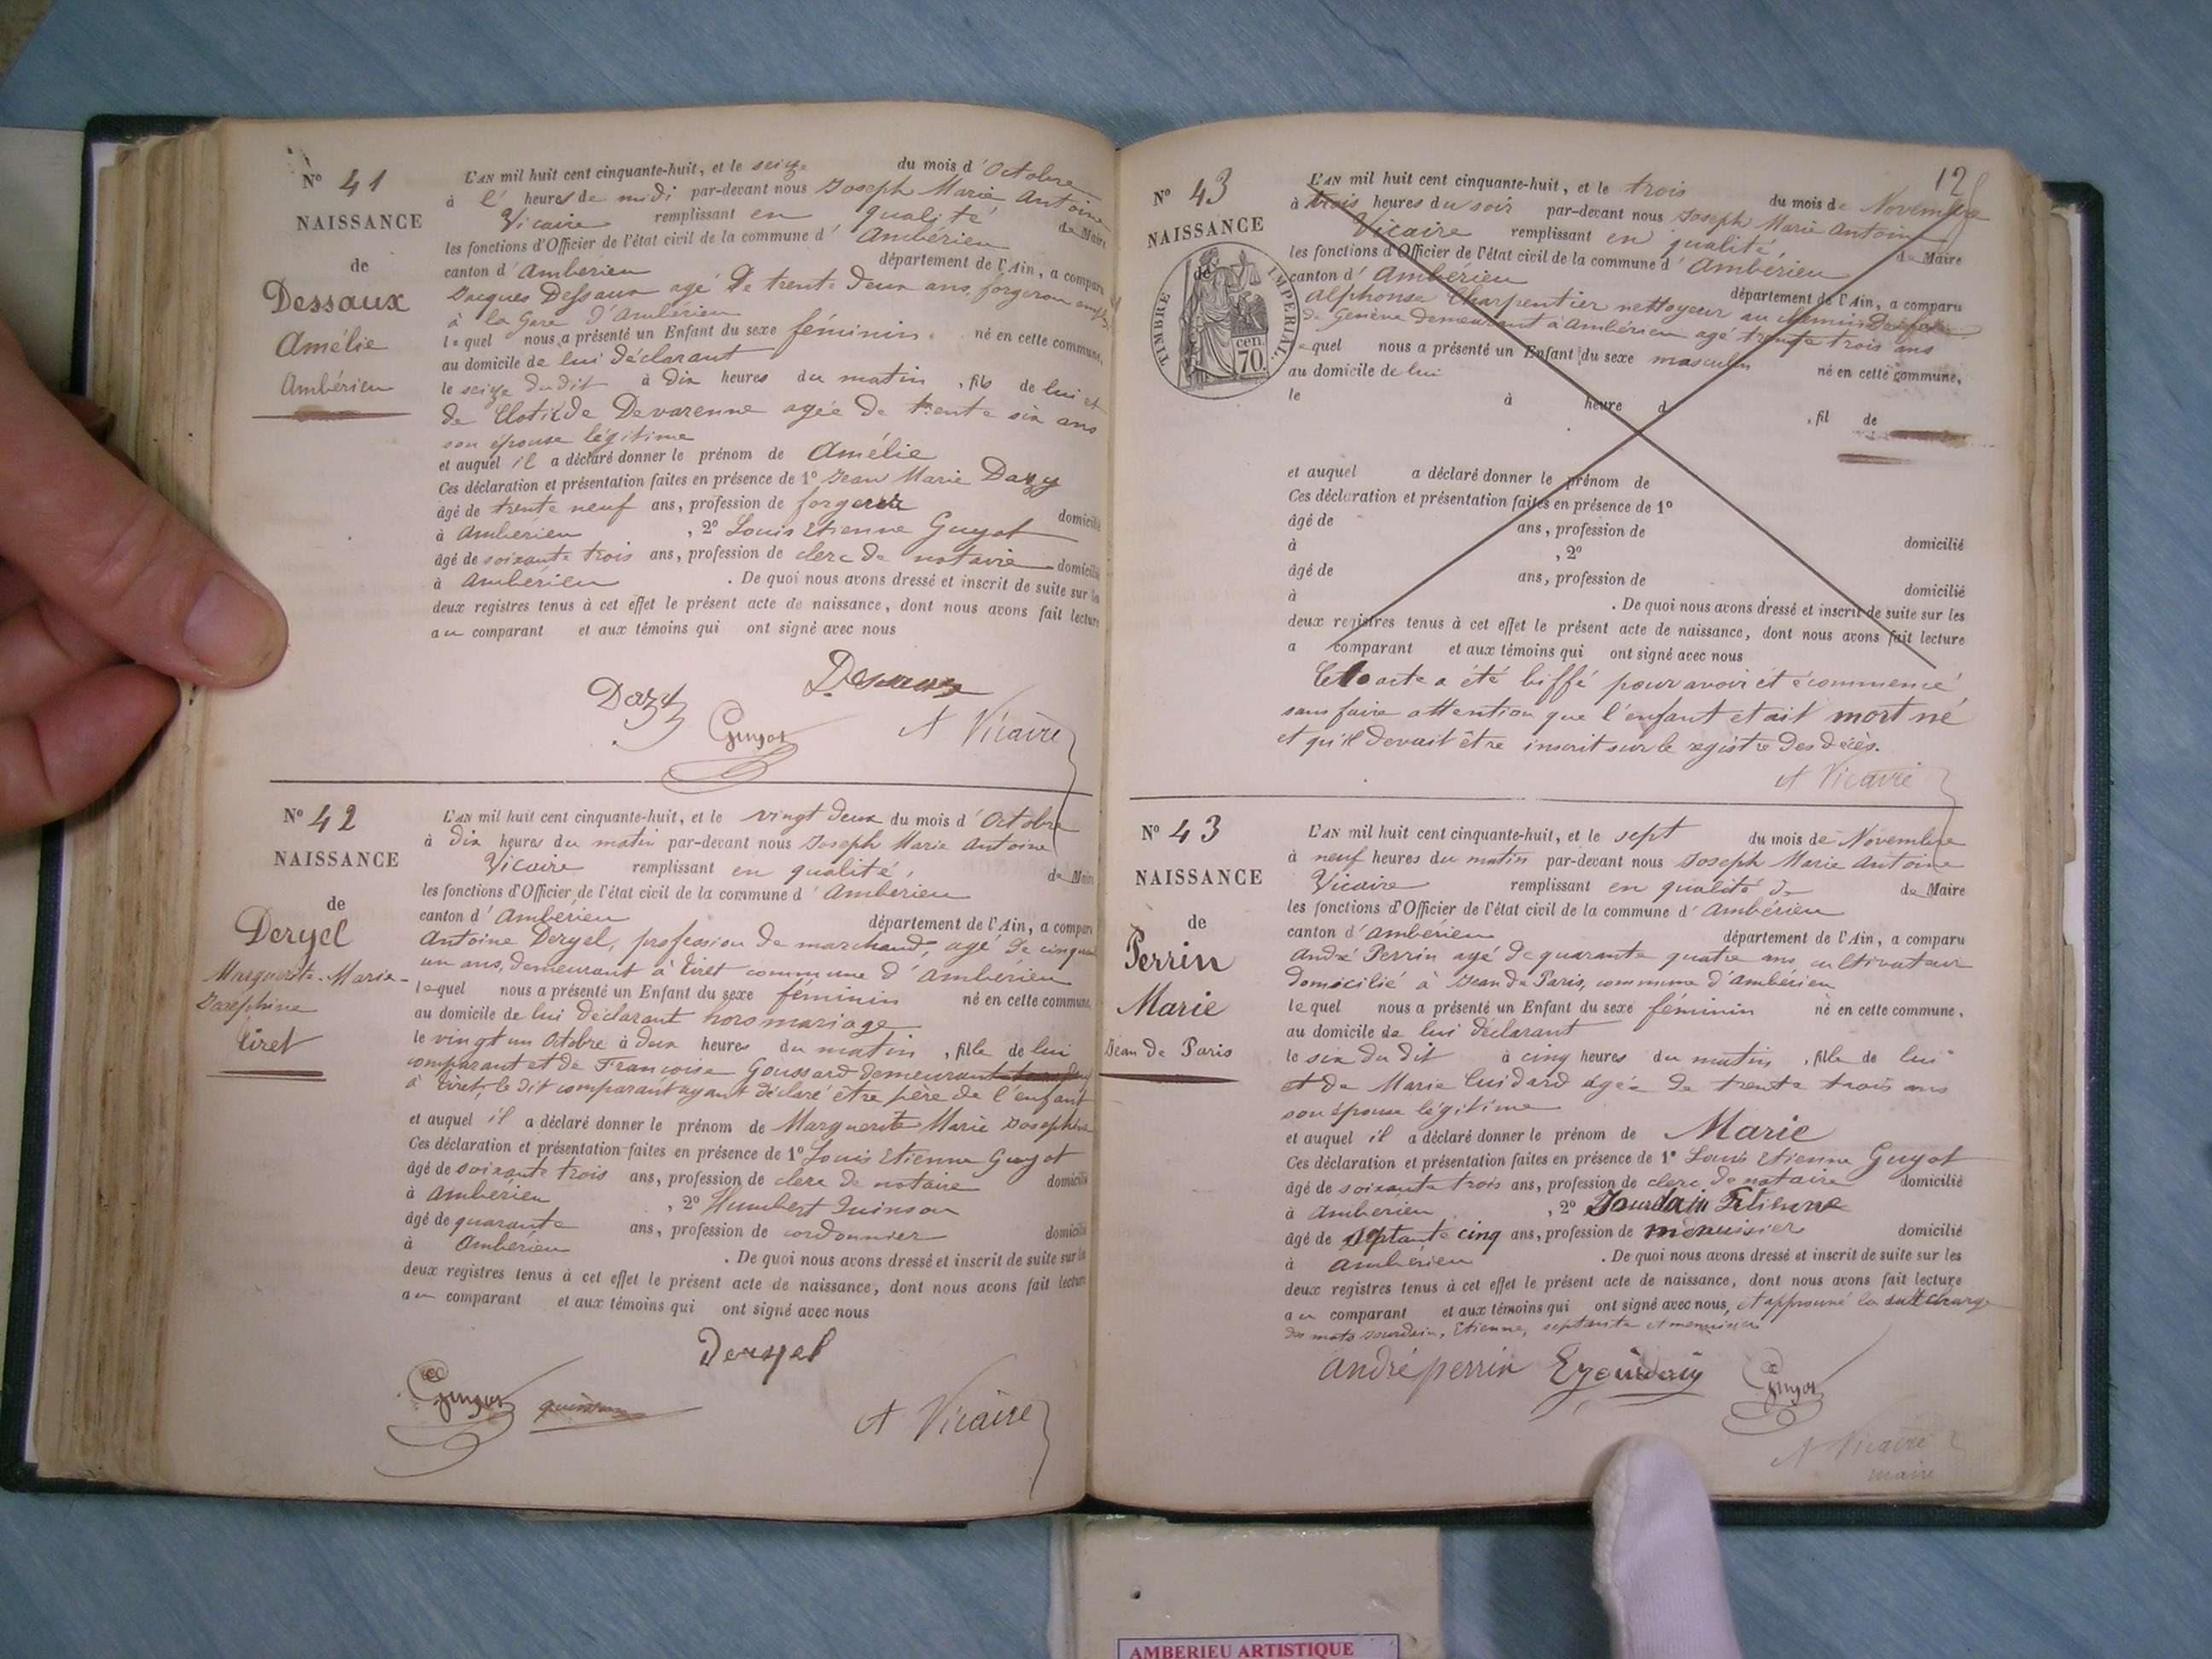 N° 41
NAISSANCE
de
Dessaux
Amélie
Ambérieu
L'AN mil huit cent cinquante-huit, et le seize du mois d'Octobre
à l' heures de midi par-devant nous Joseph Marie Antoine
Vicaire remplissant en qualité de Maire
les fonctions d'Officier de l'état civil de la commune d' Ambérieu
canton d' Ambérieu département de l'Ain, a comparu
Jacques Dessaux agé de trente deux ans, forgeron
à la Gare d'Ambérieu
lequel nous a présenté un Enfant du sexe féminin né en cette commune,
au domicile de lui déclarant
le seize dudit à dix heures du matin, fils de lui et
de Clotilde Devarenne agée de trente six ans
son épouse légitime
et auquel il a déclaré donner le prénom de Amélie
Ces déclaration et présentation faites en présence de 1° Jean Marie Dazy
âgé de trente neuf ans, profession de forgeur
domicilié
à Ambérieu, 2° Louis Etienne Guyot
âgé de soixante trois ans, profession de clerc de notaire domicilié
à Ambérieu . De quoi nous avons dressé et inscrit de suite sur les
deux registres tenus à cet effet le présent acte de naissance, dont nous avons fait lecture
au comparant et aux témoins qui ont signé avec nous
Dazy Dessaux
Guyot A Vicaire
N° 42
NAISSANCE
de
Deryel
Marguerite-Marie-
Josephine
Tiret
L'AN mil huit cent cinquante-huit, et le vingt deux du mois d'Octobre
à dix heures du matin par-devant nous Joseph Marie Antoine
Vicaire remplissant en qualité, de Maire
les fonctions d'Officier de l'état civil de la commune d' Ambérieu
canton d' Ambérieu département de l'Ain, a comparu
Antoine Deryel, profession de marchand, agé de cinquante
un ans, demeurant à Tiret commune d'Ambérieu
lequel nous a présenté un Enfant du sexe féminin né en cette commune,
au domicile de lui déclarant hors mariage
le vingt un Octobre à deux heures du matin, fille de lui
comparant et de Francoise Goussard demeurant
à Tiret, le dit comparant ayant déclaré être père de l'enfant
et auquel il a déclaré donner le prénom de Marguerite Marie Josephine
Ces déclaration et présentation faites en présence de 1° Louis Etienne Guyot
âgé de soixante trois ans, profession de clerc de notaire domicilié
à Ambérieu, 2° Humbert Quinson
âgé de quarante ans, profession de cordonnier domicilié
à Ambérieu . De quoi nous avons dressé et inscrit de suite sur les
deux registres tenus à cet effet le présent acte de naissance, dont nous avons fait lecture
au comparant et aux témoins qui ont signé avec nous
Deryel
Guyot quinson A Vicaire
12
N° 43
NAISSANCE
de
TIMBRE IMPERIAL
70 cen.
L'AN mil huit cent cinquante-huit, et le trois du mois de Novembre
à trois heures du soir par-devant nous Joseph Marie Antoine
Vicaire remplissant en qualité, de Maire
les fonctions d'Officier de l'état civil de la commune d' Ambérieu
canton d' Ambérieu département de l'Ain, a comparu
Alphonse Charpentier nettoyeur au chemin de fer
de Genève demeurant à Ambérieu agé trente trois ans
lequel nous a présenté un Enfant du sexe masculin né en cette commune,
au domicile de lui
le à heure d , fil de
et auquel a déclaré donner le prénom de
Ces déclaration et présentation faites en présence de 1°
âgé de ans, profession de
domicilié
à , 2°
âgé de ans, profession de
domicilié
à . De quoi nous avons dressé et inscrit de suite sur les
deux registres tenus à cet effet le présent acte de naissance, dont nous avons fait lecture
a comparant et aux témoins qui ont signé avec nous
acte a été biffé pour avoir été commencé
sans faire attention que l'enfant etait mort né
et qu'il devait être inscrit sur le registre des décès.
A Vicaire
N° 43
NAISSANCE
de
Perrin
Marie
Jean de Paris
L'AN mil huit cent cinquante-huit, et le sept du mois de Novembre
à neuf heures du matin par-devant nous Joseph Marie Antoine
Vicaire remplissant en qualité de de Maire
les fonctions d'Officier de l'état civil de la commune d' Ambérieu
canton d' Ambérieu département de l'Ain, a comparu
André Perrin agé de quarante quatre ans, cultivateur
domicilié à Jean de Paris, commune d'Ambérieu
lequel nous a présenté un Enfant du sexe féminin né en cette commune,
au domicile de lui déclarant
le six du dit à cinq heures du matin, fille de lui
et de Marie Cuidard agée de trente trois ans
son épouse légitime
et auquel il a déclaré donner le prénom de Marie
Ces déclaration et présentation faites en présence de 1° Louis Etienne Guyot
âgé de soixante trois ans, profession de clerc de notaire domicilié
à Ambérieu, 2° Jourdain Etienne
âgé de septante cinq ans, profession de menuisier domicilié
à Ambérieu . De quoi nous avons dressé et inscrit de suite sur les
deux registres tenus à cet effet le présent acte de naissance, dont nous avons fait lecture
au comparant et aux témoins qui ont signé avec nous, et approuvé la surcharge
des mots Jourdain, Etienne, septante et menuisier
andré perrin E Jourdain Guyot
A Vicaire
maire
AMBERIEU ARTISTIQUE